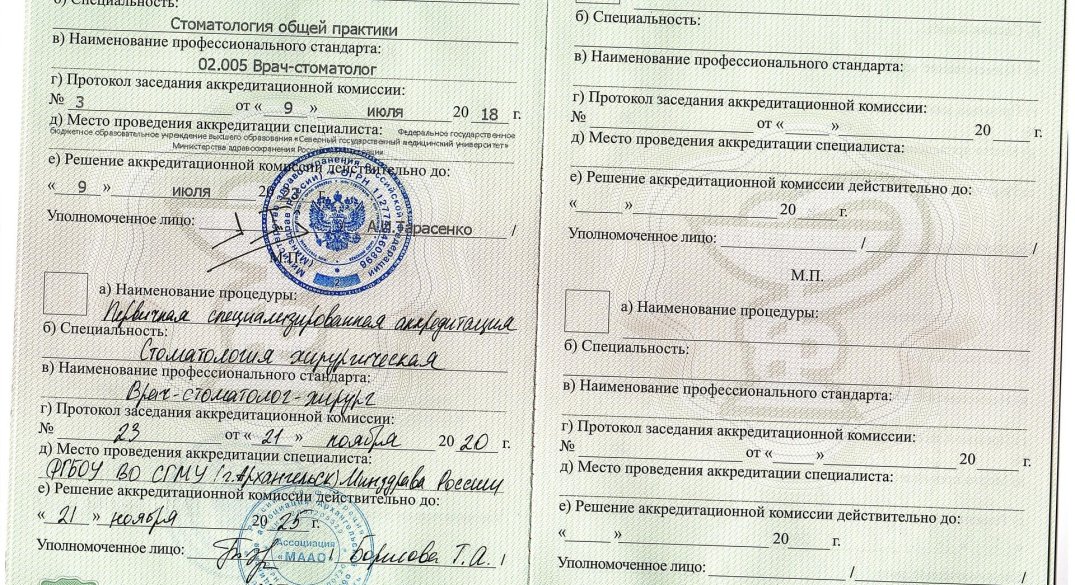 б) Специальность:
Стоматология общей практики
в) Наименование профессионального стандарта:
02.005 Врач-стоматолог
г) Протокол заседания аккредитационной комиссии:
№ 3 от « 9 » июля 20 18 г.
д) Место проведения аккредитации специалиста: Федеральное государственное
бюджетное образовательное учреждение высшего образования «Северный государственный медицинский университет»
Министерства здравоохранения Российской Федерации
е) Решение аккредитационной комиссии действительно до:
« 9 » июля 20 г.
Уполномоченное лицо: А.В.Тарасенко /
М.П.
Министерство здравоохранения Российской Федерации
(Минздрав России) ОГРН 1127746460896
2
а) Наименование процедуры:
Первичная специализированная аккредитация
б) Специальность:
Стоматология хирургическая
в) Наименование профессионального стандарта:
Врач-стоматолог-хирург
г) Протокол заседания аккредитационной комиссии:
№ 23 от « 21 » ноября 20 20 г.
д) Место проведения аккредитации специалиста:
ФГБОУ ВО СГМУ (г. Архангельск) Минздрава России
е) Решение аккредитационной комиссии действительно до:
« 21 » ноября 20 25 г.
Уполномоченное лицо: / Борисова Т.А. /
Ассоциация
«МААО»
б) Специальность:
в) Наименование профессионального стандарта:
г) Протокол заседания аккредитационной комиссии:
№ от « » 20 г.
д) Место проведения аккредитации специалиста:
е) Решение аккредитационной комиссии действительно до:
« » 20 г.
Уполномоченное лицо: / /
М.П.
а) Наименование процедуры:
б) Специальность:
в) Наименование профессионального стандарта:
г) Протокол заседания аккредитационной комиссии:
№ от « » 20 г.
д) Место проведения аккредитации специалиста:
е) Решение аккредитационной комиссии действительно до:
« » 20 г.
Уполномоченное лицо: / /